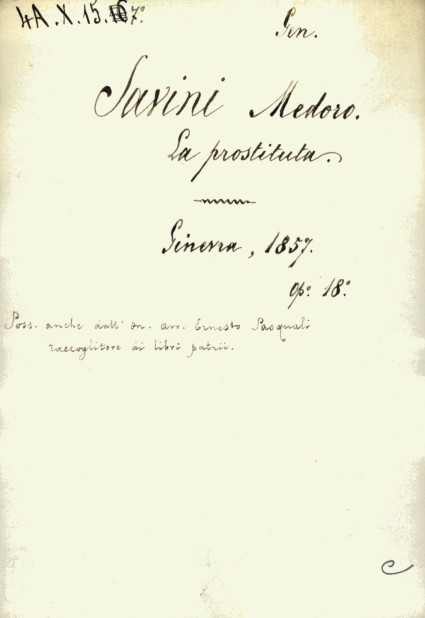 4A.X.15.67º
Gen.
Savini Medoro.
La prostituta.
Ginevra, 1857.
opº 18º
Poss. anche dall' on. avv. Ernesto Pasquali
raccoglitore di libri patrii.
C